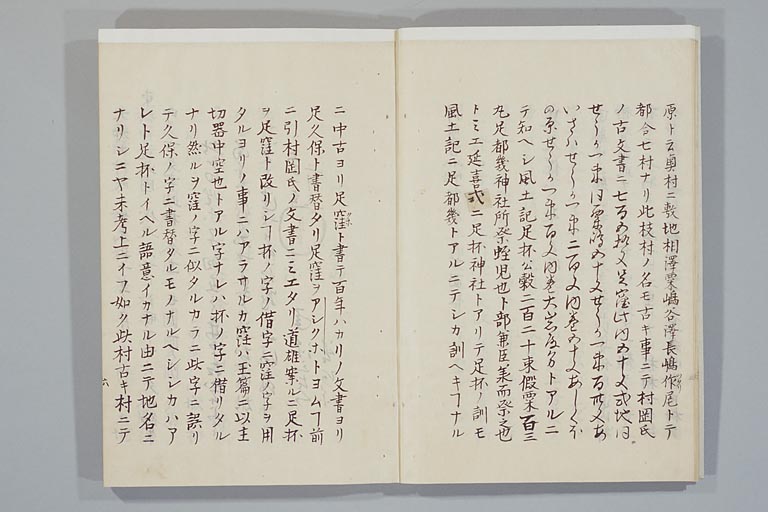 原ト云奥村ニ敷地相澤粟嶋谷澤長嶋作尾トテ
都合七村ナリ此枝村ノ名モ古キ事ニテ村岡氏
ノ古文書ニ七百
せうかつ米
いさハせうかつ米二百文
の原せうかつ米百文 大岩 トアルニ
テ知ヘシ風土記足杯公穀二百二十束假粟百三
丸足都幾神社所祭蛭児也卜部兼臣業而祭之也
トミエ延喜式ニ足杯神社トアリテ足杯ノ訓モ
風土記ニ足都幾トアルニテシカ訓ヘキフナル
ニ中古ヨリ足窪ト書テ百年ハカリノ文書ヨリ
足久保ト書替タリ足窪ヲアシクホトヨムフ前
ニ引村岡氏ノ文書ニミエタリ道雄案ルニ足杯
ヲ足窪ト改リシフ杯ノ字ノ借字ニ窪ノ字ヲ用
タルヨリノ事ニハアラサルカ窪ハ玉篇ニ以主
切器中空也トアル字ナレハ杯ノ字ニ借リタル
ナリ然ルヲ窪ノ字ニ似タルカラニ此字ニ誤リ
テ久保ノ字ニ書替タルモノナルヘシシカハア
レト足杯トイヘル語意イカナル由ニテ地名ニ
ナリシニヤ未考上ニイフ如ク此村古キ村ニテ
六